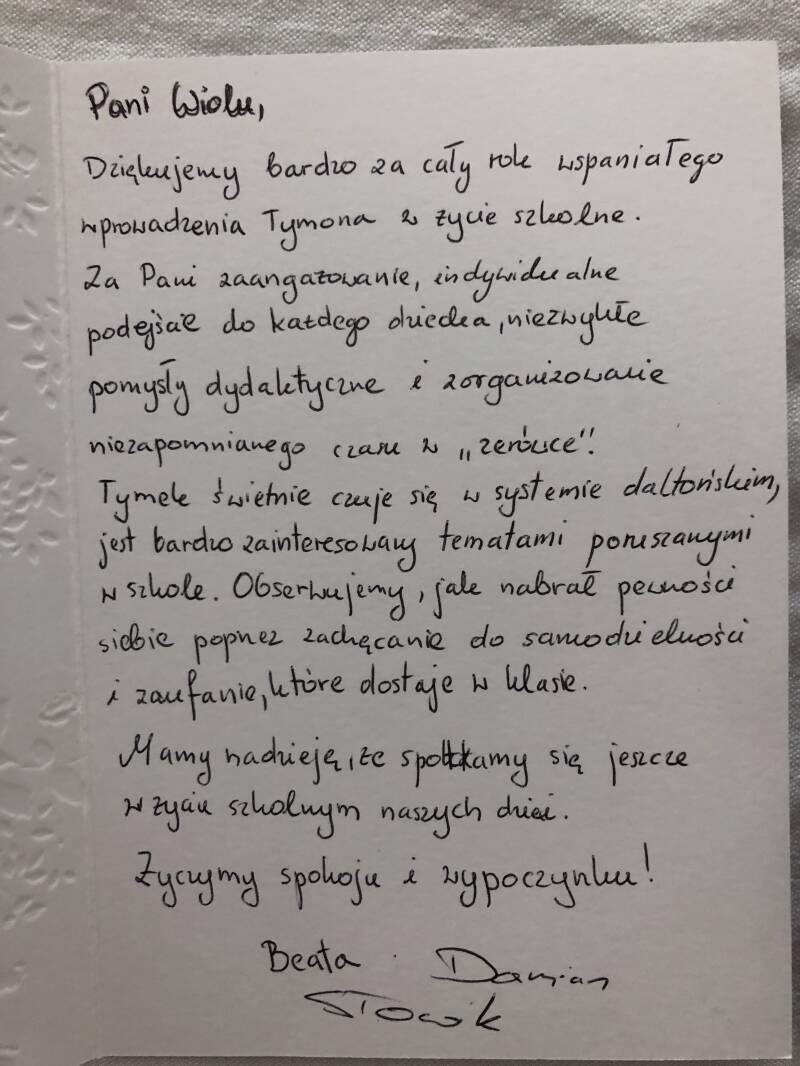 Pani Wiolu,
Dziękujemy bardzo za cały rok wspaniałego
wprowadzenia Tymona w życie szkolne.
Za Pani zaangażowanie, indywidualne
podejście do każdego dziecka, niezwykłe
pomysły dydaktyczne i zorganizowanie
niezapomnianego czasu w „zerówce”.
Tymek świetnie czuje się w systemie daltońskim,
jest bardzo zainteresowany tematami poruszanymi
w szkole. Obserwujemy, jak nabrał pewności
siebie poprzez zachęcanie do samodzielności
i zaufanie, które dostaje w klasie.
Mamy nadzieję, że spotkamy się jeszcze
w życiu szkolnym naszych dzieci.
Życzymy spokoju i wypoczynku!
Beata Damian
Słowik